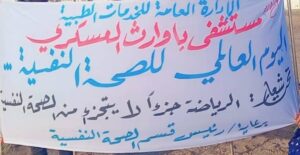 الإدارة العامة للخدمات الطبية
مستشفى باوارث العسكري
اليوم العالمي للصحة النفسية
تحت شعار/ الرياضة جزءاً لا يتجزء من الصحة النفسية
برعاية/ رئيس قسم الصحة النفسية